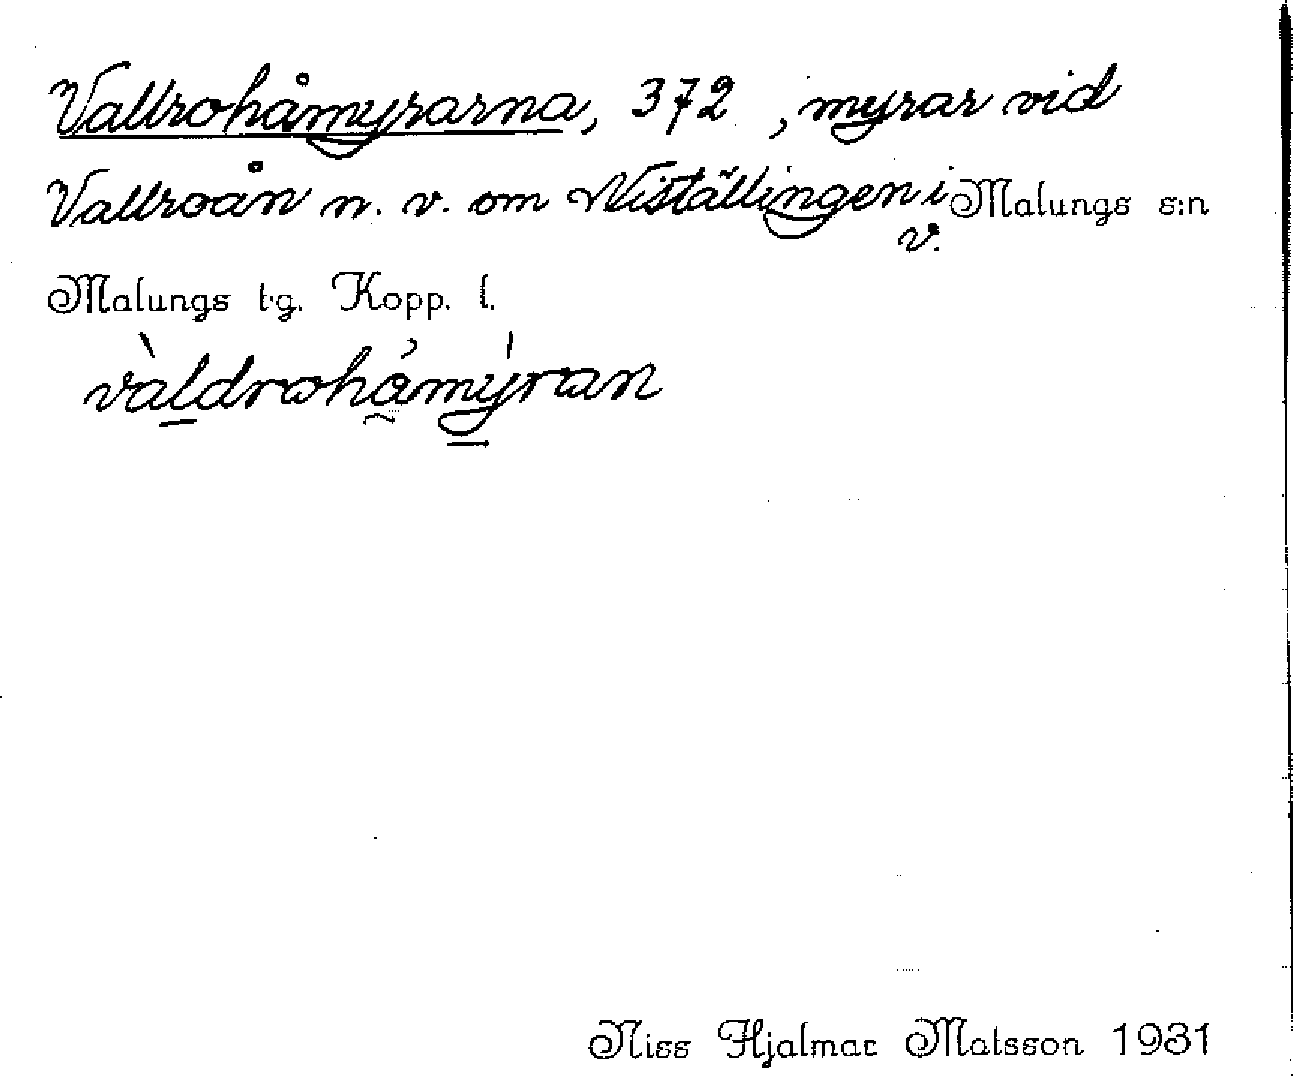 Vallrohåmyrarna, 372, myrar vid
Vallroån n. v. om Niställingen i Malungs s:n
v.
Malungs t·g. Kopp. l.
våldrohåmýran
Niss Hjalmar Matsson 1931